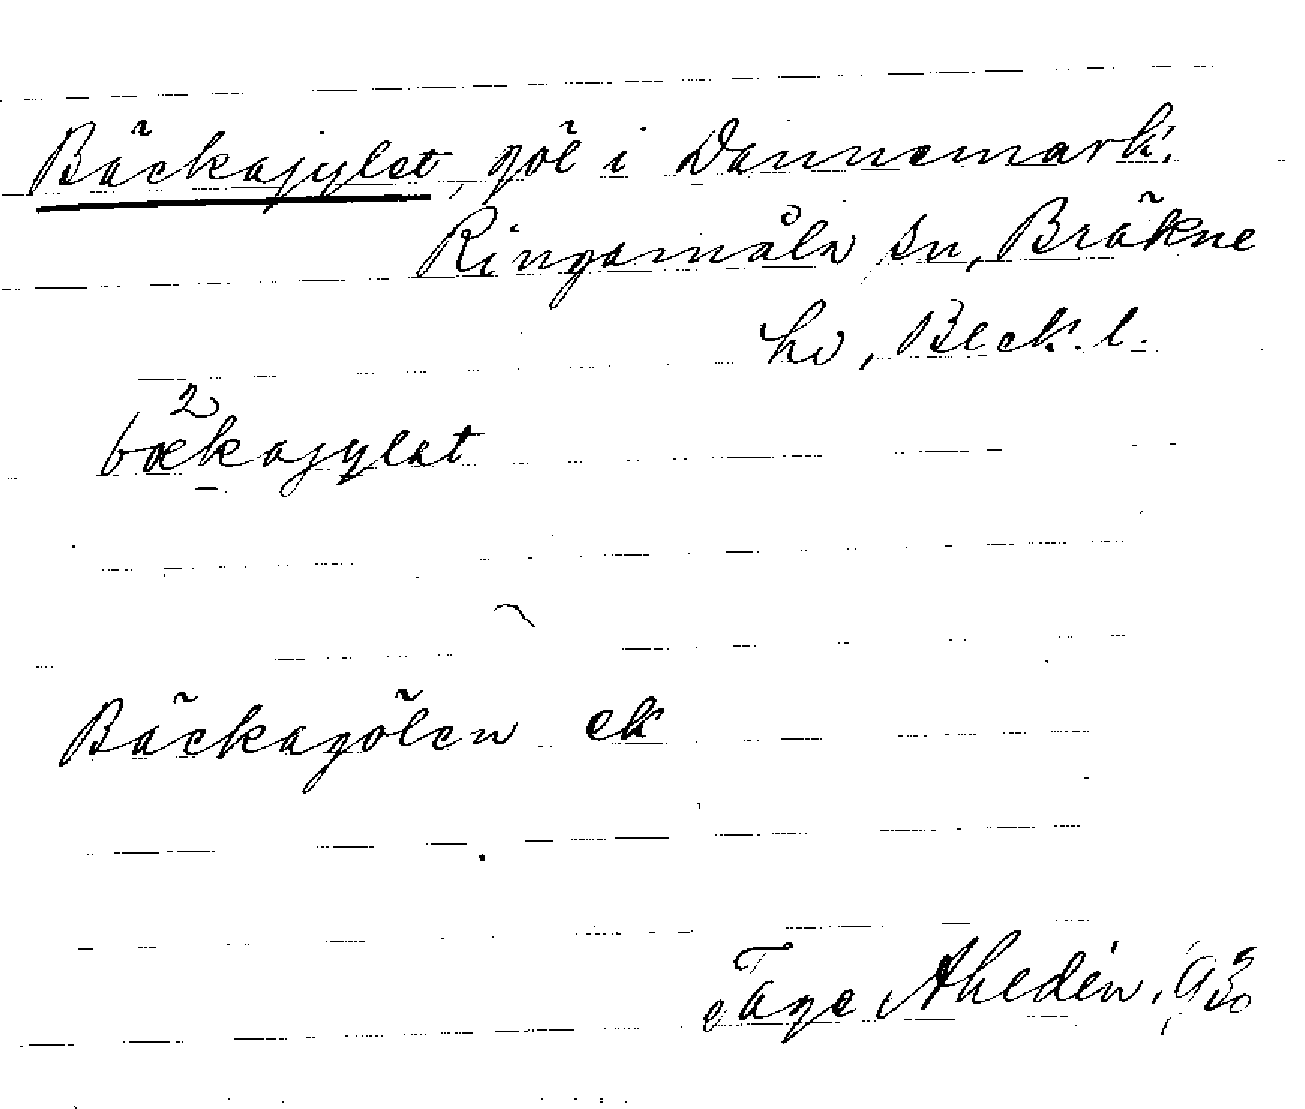 Bäckajylet, göl i Dannemark.
Ringamåla sn, Bräkne
hd, Bleck. l.
2
bækajylat
Bäckagölen ek
Tage Ahldén, 1930